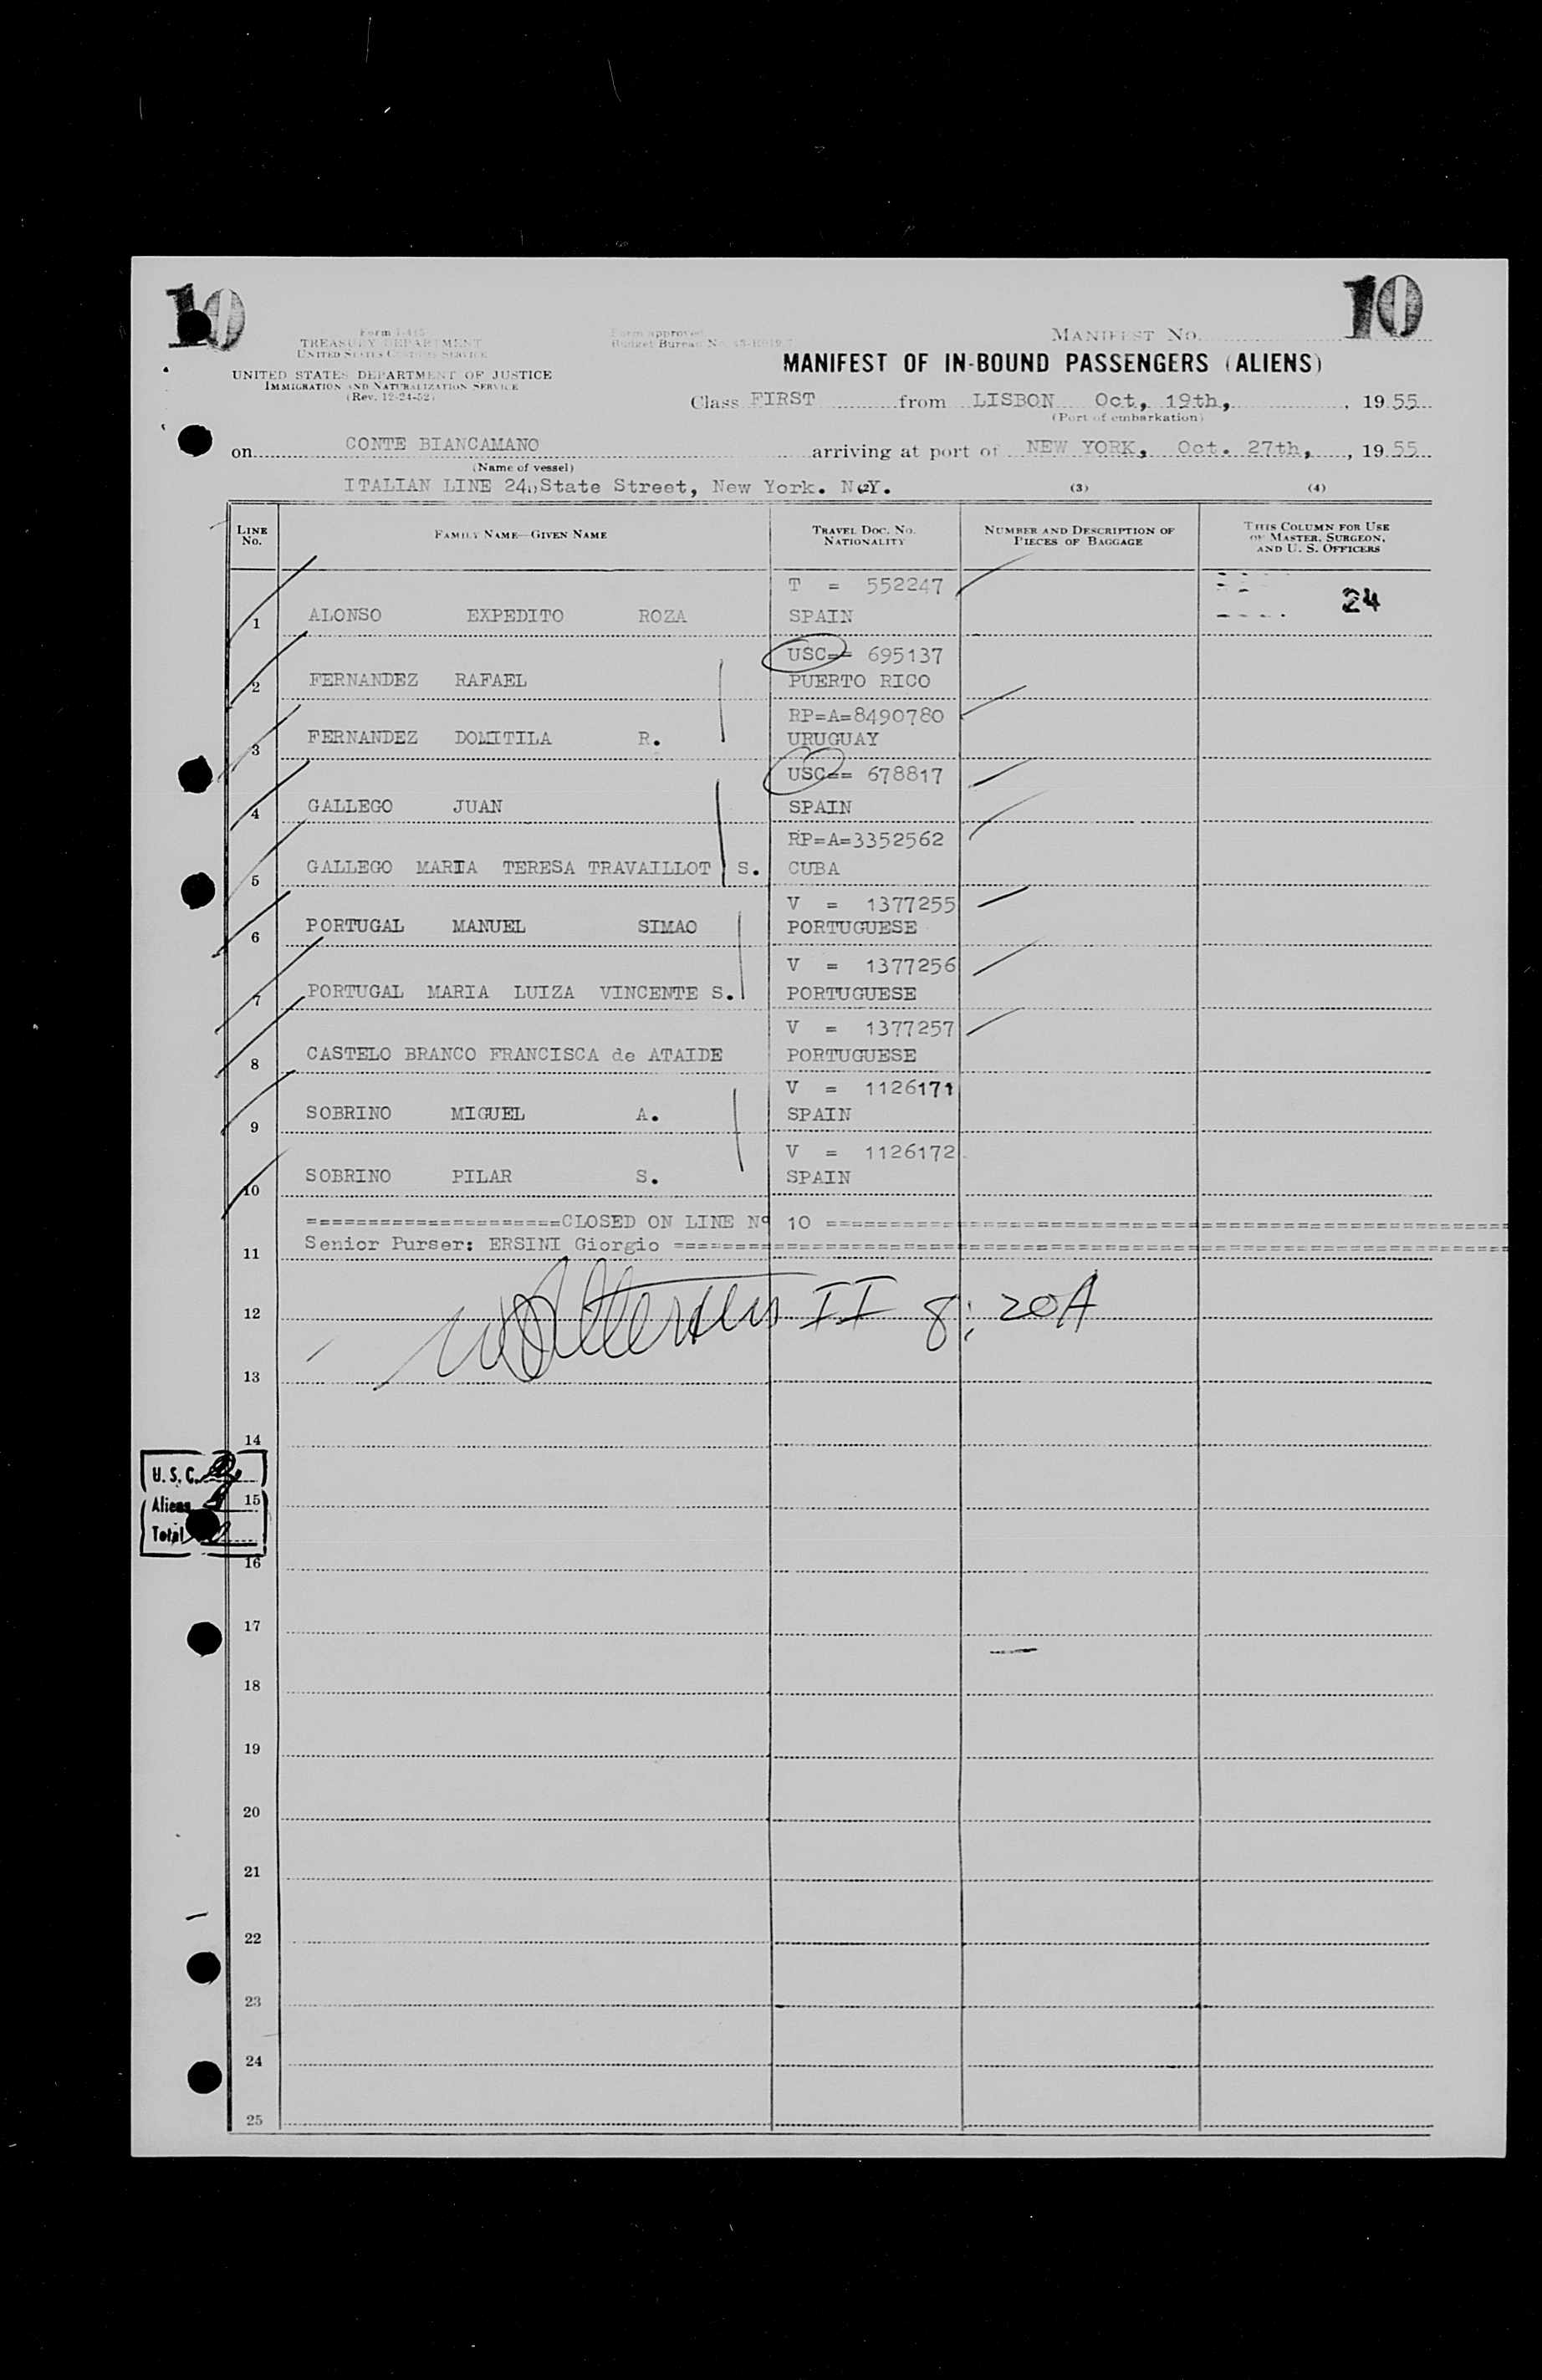 10
10
Form I-415
TREASURY DEPARTMENT
UNITED STATES CUSTOMS SERVICE
Form approved
Budget Bureau No.
MANIFEST No.
UNITED STATES DEPARTMENT OF JUSTICE
IMMIGRATION AND NATURALIZATION SERVICE
(Rev. 12-24-52)
MANIFEST OF IN-BOUND PASSENGERS (ALIENS)
Class FIRST from LISBON Oct, 19th, , 19 55
(Port of embarkation)
on CONTE BIANCAMANO arriving at port of NEW YORK, Oct. 27th, , 19 55
(Name of vessel)
ITALIAN LINE 24, State Street, New York. N.Y.
(3) (4)
LINE No. FAMILY NAME—GIVEN NAME TRAVEL DOC. NO. NATIONALITY NUMBER AND DESCRIPTION OF PIECES OF BAGGAGE THIS COLUMN FOR USE OF MASTER, SURGEON, AND U. S. OFFICERS
T = 552247
24
1 ALONSO EXPEDITO ROZA SPAIN
USC== 695137
2 FERNANDEZ RAFAEL PUERTO RICO
RP=A=8490780
3 FERNANDEZ DOMITILA R. URUGUAY
USC== 678817
4 GALLEGO JUAN SPAIN
RP=A=3352562
5 GALLEGO MARIA TERESA TRAVAILLOT S. CUBA
V = 1377255
6 PORTUGAL MANUEL SIMAO PORTUGUESE
V = 1377256
7 PORTUGAL MARIA LUIZA VINCENTE S. PORTUGUESE
V = 1377257
8 CASTELO BRANCO FRANCISCA de ATAIDE PORTUGUESE
V = 1126171
9 SOBRINO MIGUEL A. SPAIN
V = 1126172
10 SOBRINO PILAR S. SPAIN
=====================CLOSED ON LINE Nº 10 ========================================================
11 Senior Purser: ERSINI Giorgio ====================================================================
12 II 8:20A
13
14
U. S. C. 2
Aliens 8 15
Total
16
17
18
19
20
21
22
23
24
25